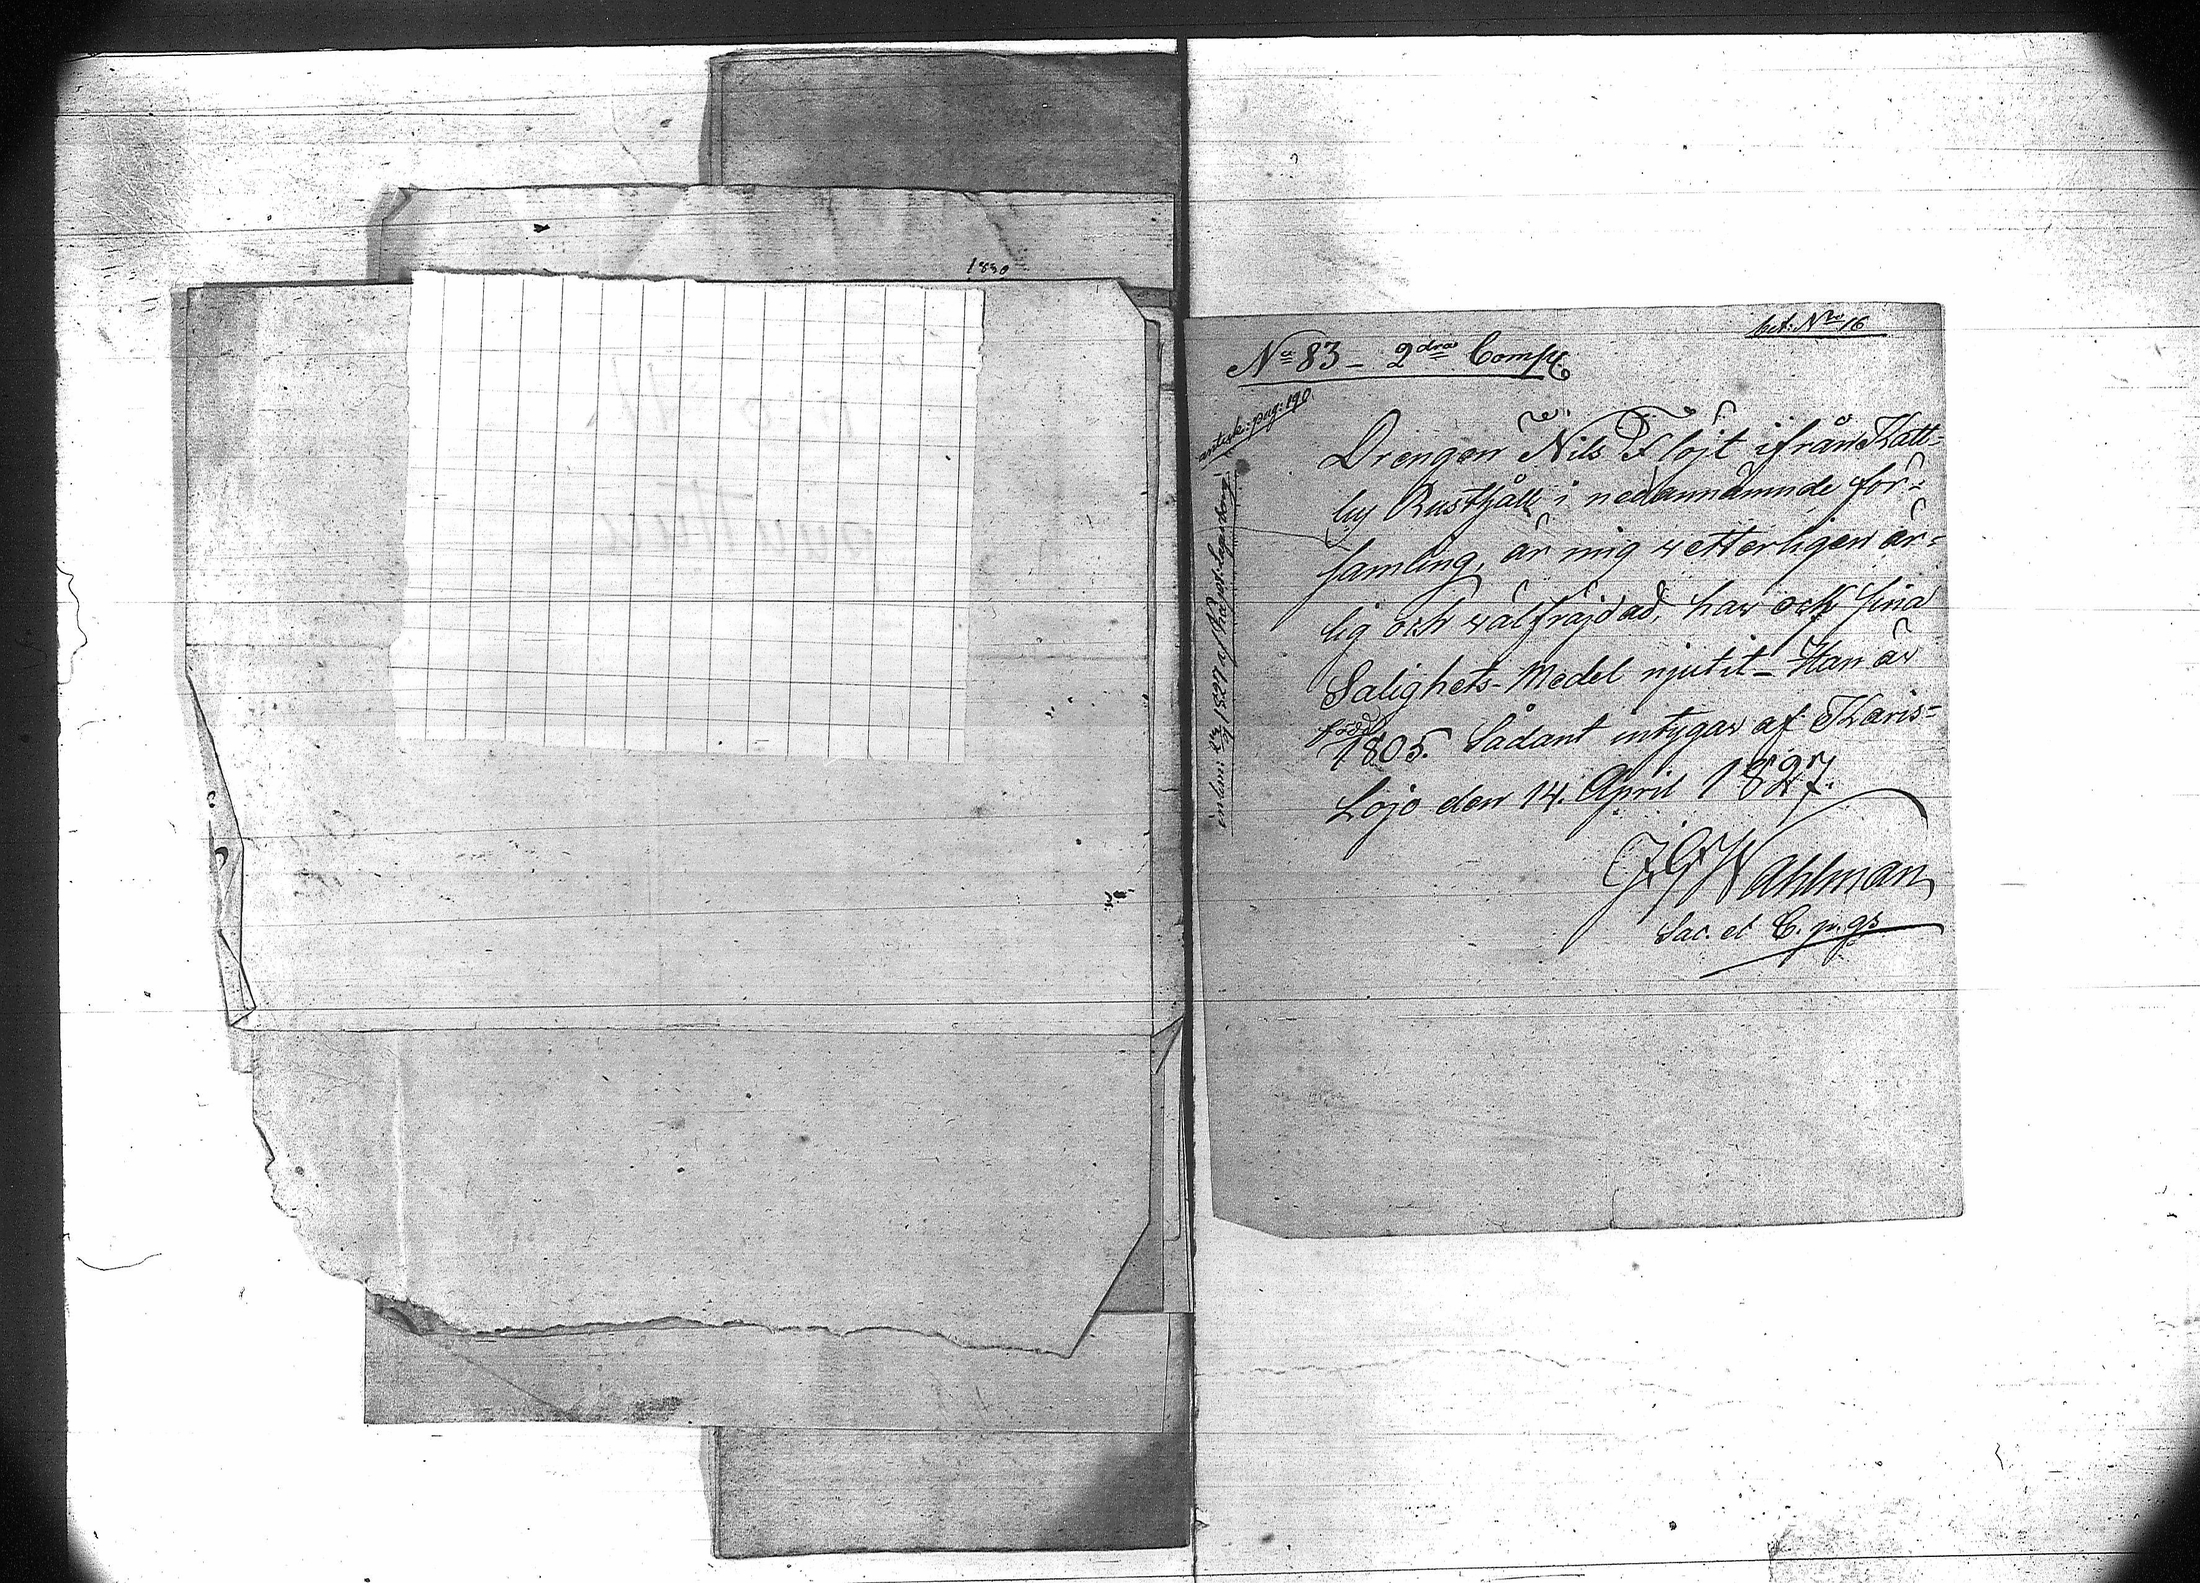 1830
bet: N:ro 16
N:o 83 – 2dra Comp:
anteck: pag: 190
Drengen Nils Flöjt ifrån Katt-
by Rusthåll i nedannämnde för-
samling, är mig vetterligen är-
lig och välfräjdad, har och sina
Salighets-Medel njutit – Han är
född
1805. Sådant intygar af Karis-
Lojo den 14. April 1827.
J. G. Wahlman
Sac. et C. p. gs
inlem: 1827 af